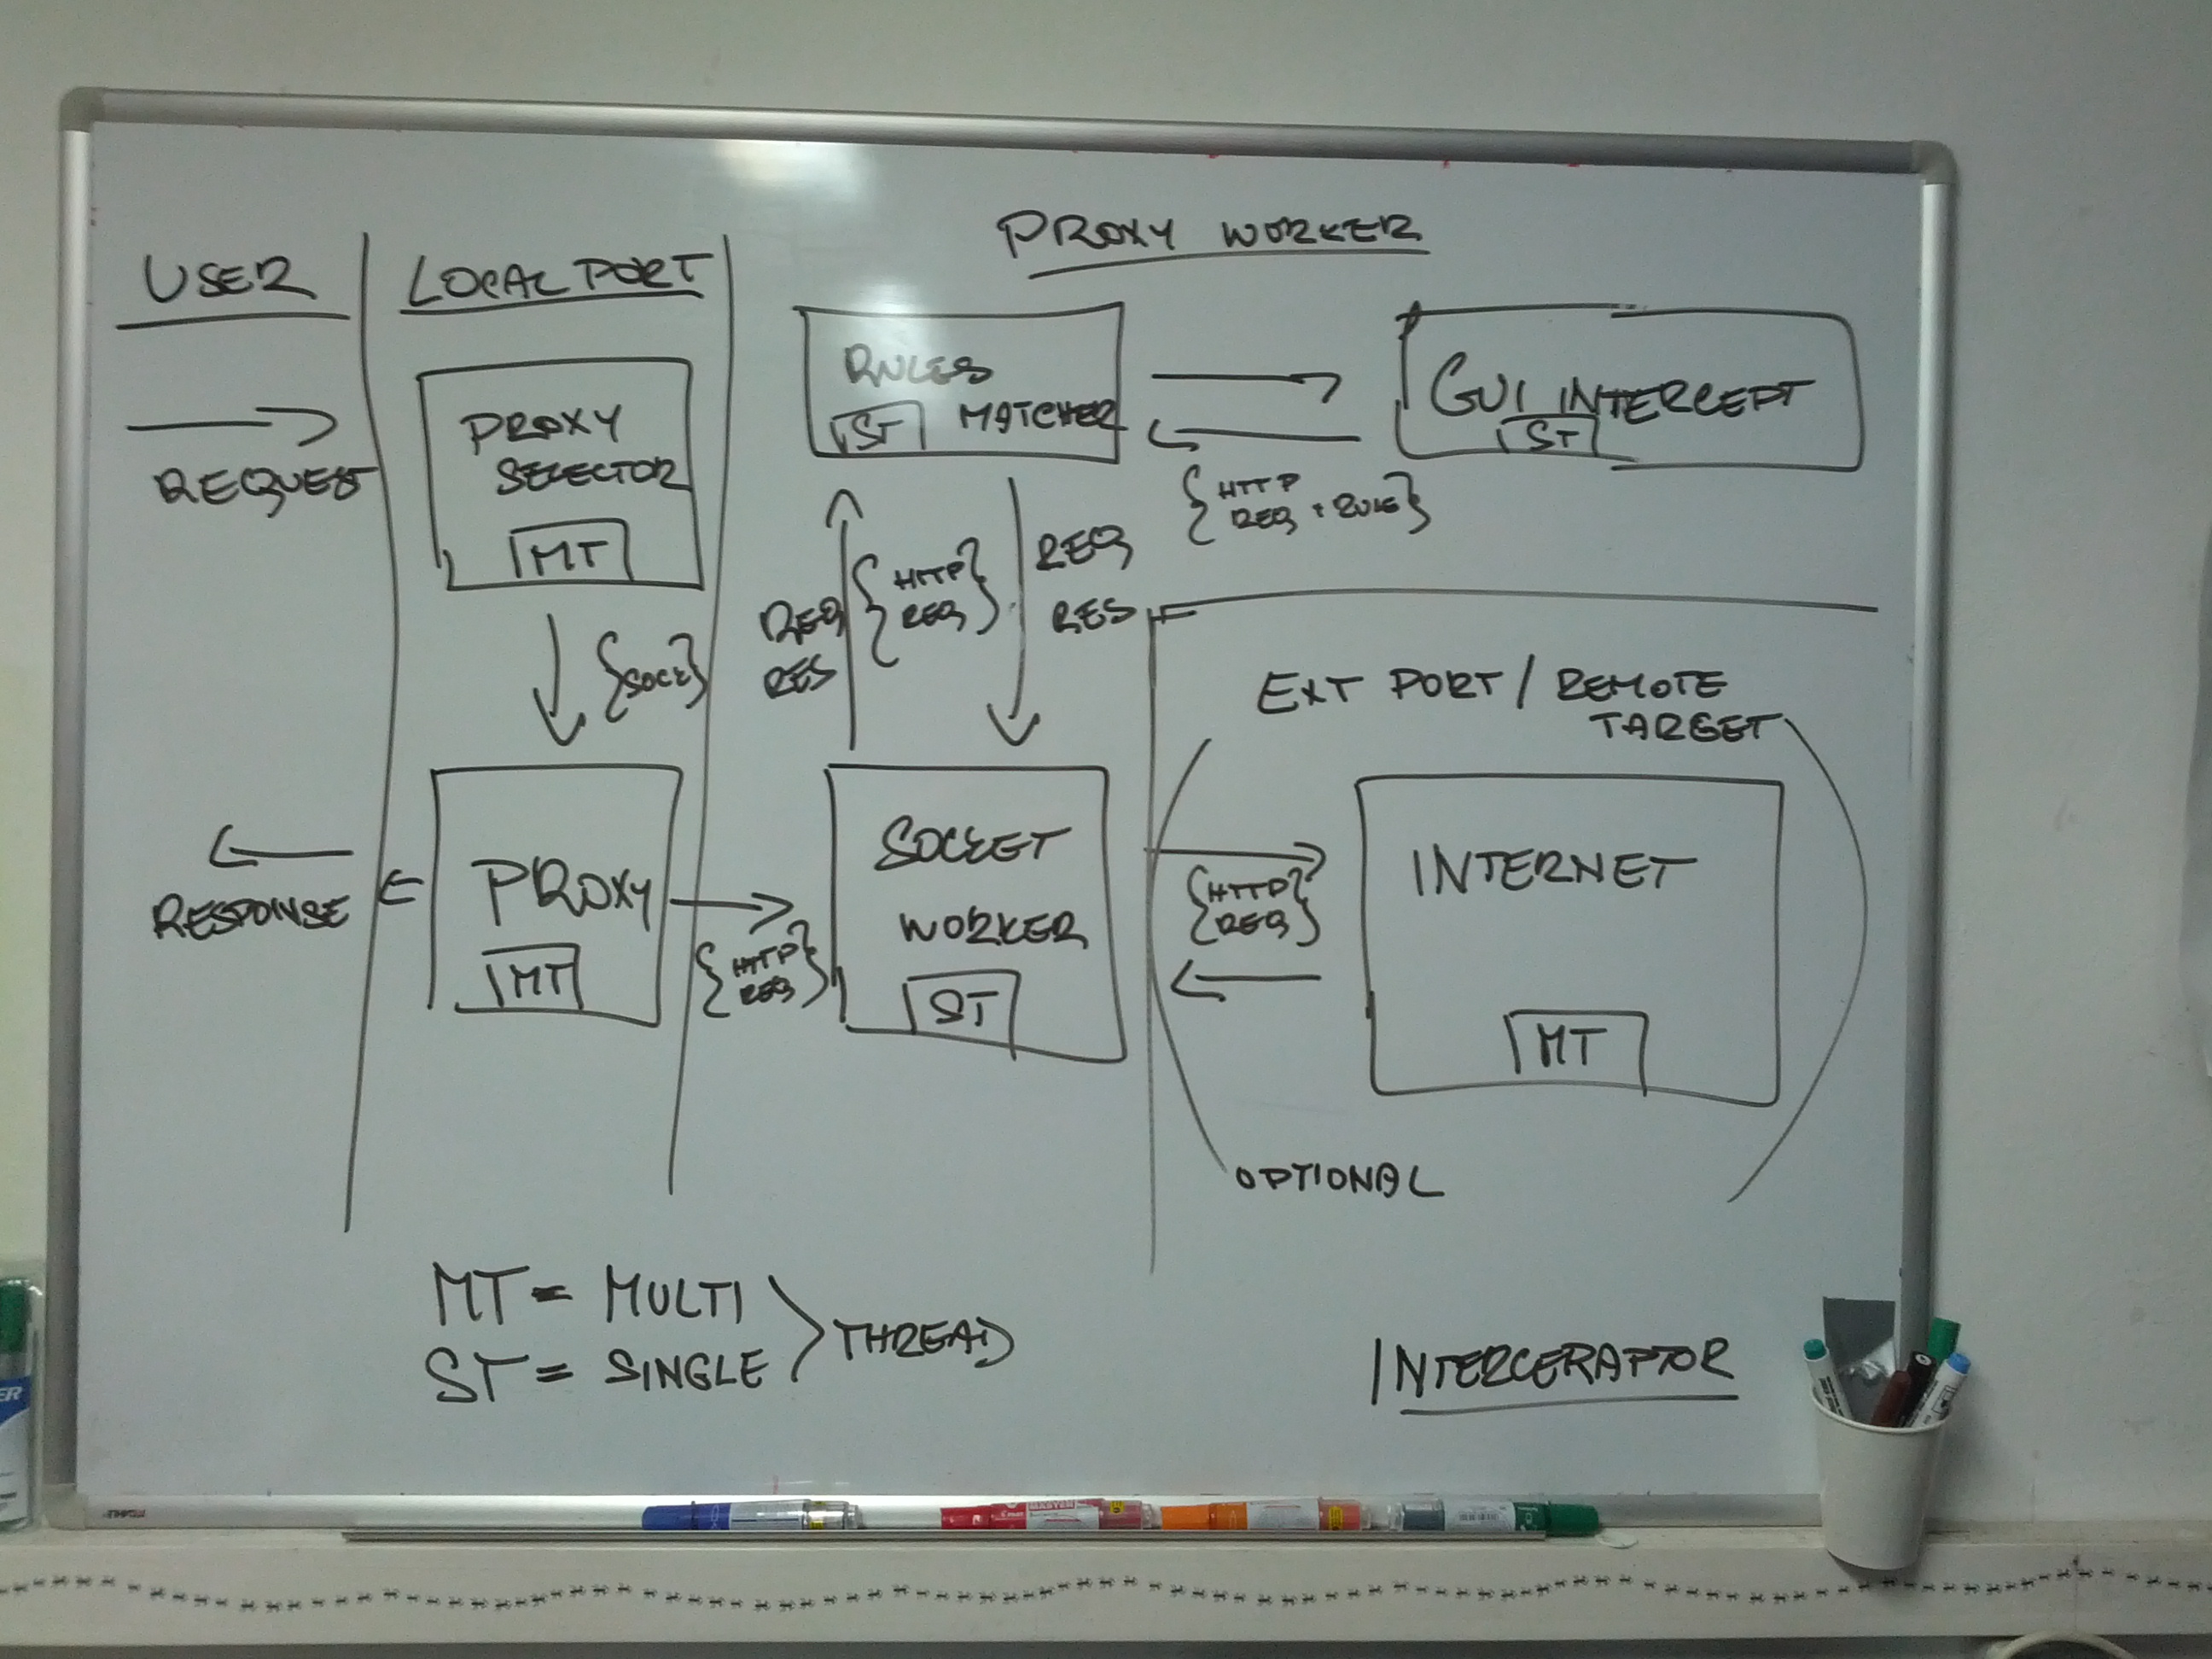 PROXY WORKER
USER
LOCAL PORT
REQUEST
PROXY
SELECTOR
MT
{SOCK}
RESPONSE
PROXY
MT
{HTTP
REQ}
RULES
MATCHER
ST
GUI INTERCEPT
ST
{HTTP
REQ + RULE}
REQ
RES
{HTTP
REQ}
REQ
RES
SOCKET
WORKER
ST
EXT PORT / REMOTE
TARGET
{HTTP
REQ}
INTERNET
MT
OPTIONAL
MT = MULTI
ST = SINGLE
THREAD
INTERCERAPTOR
MASTER